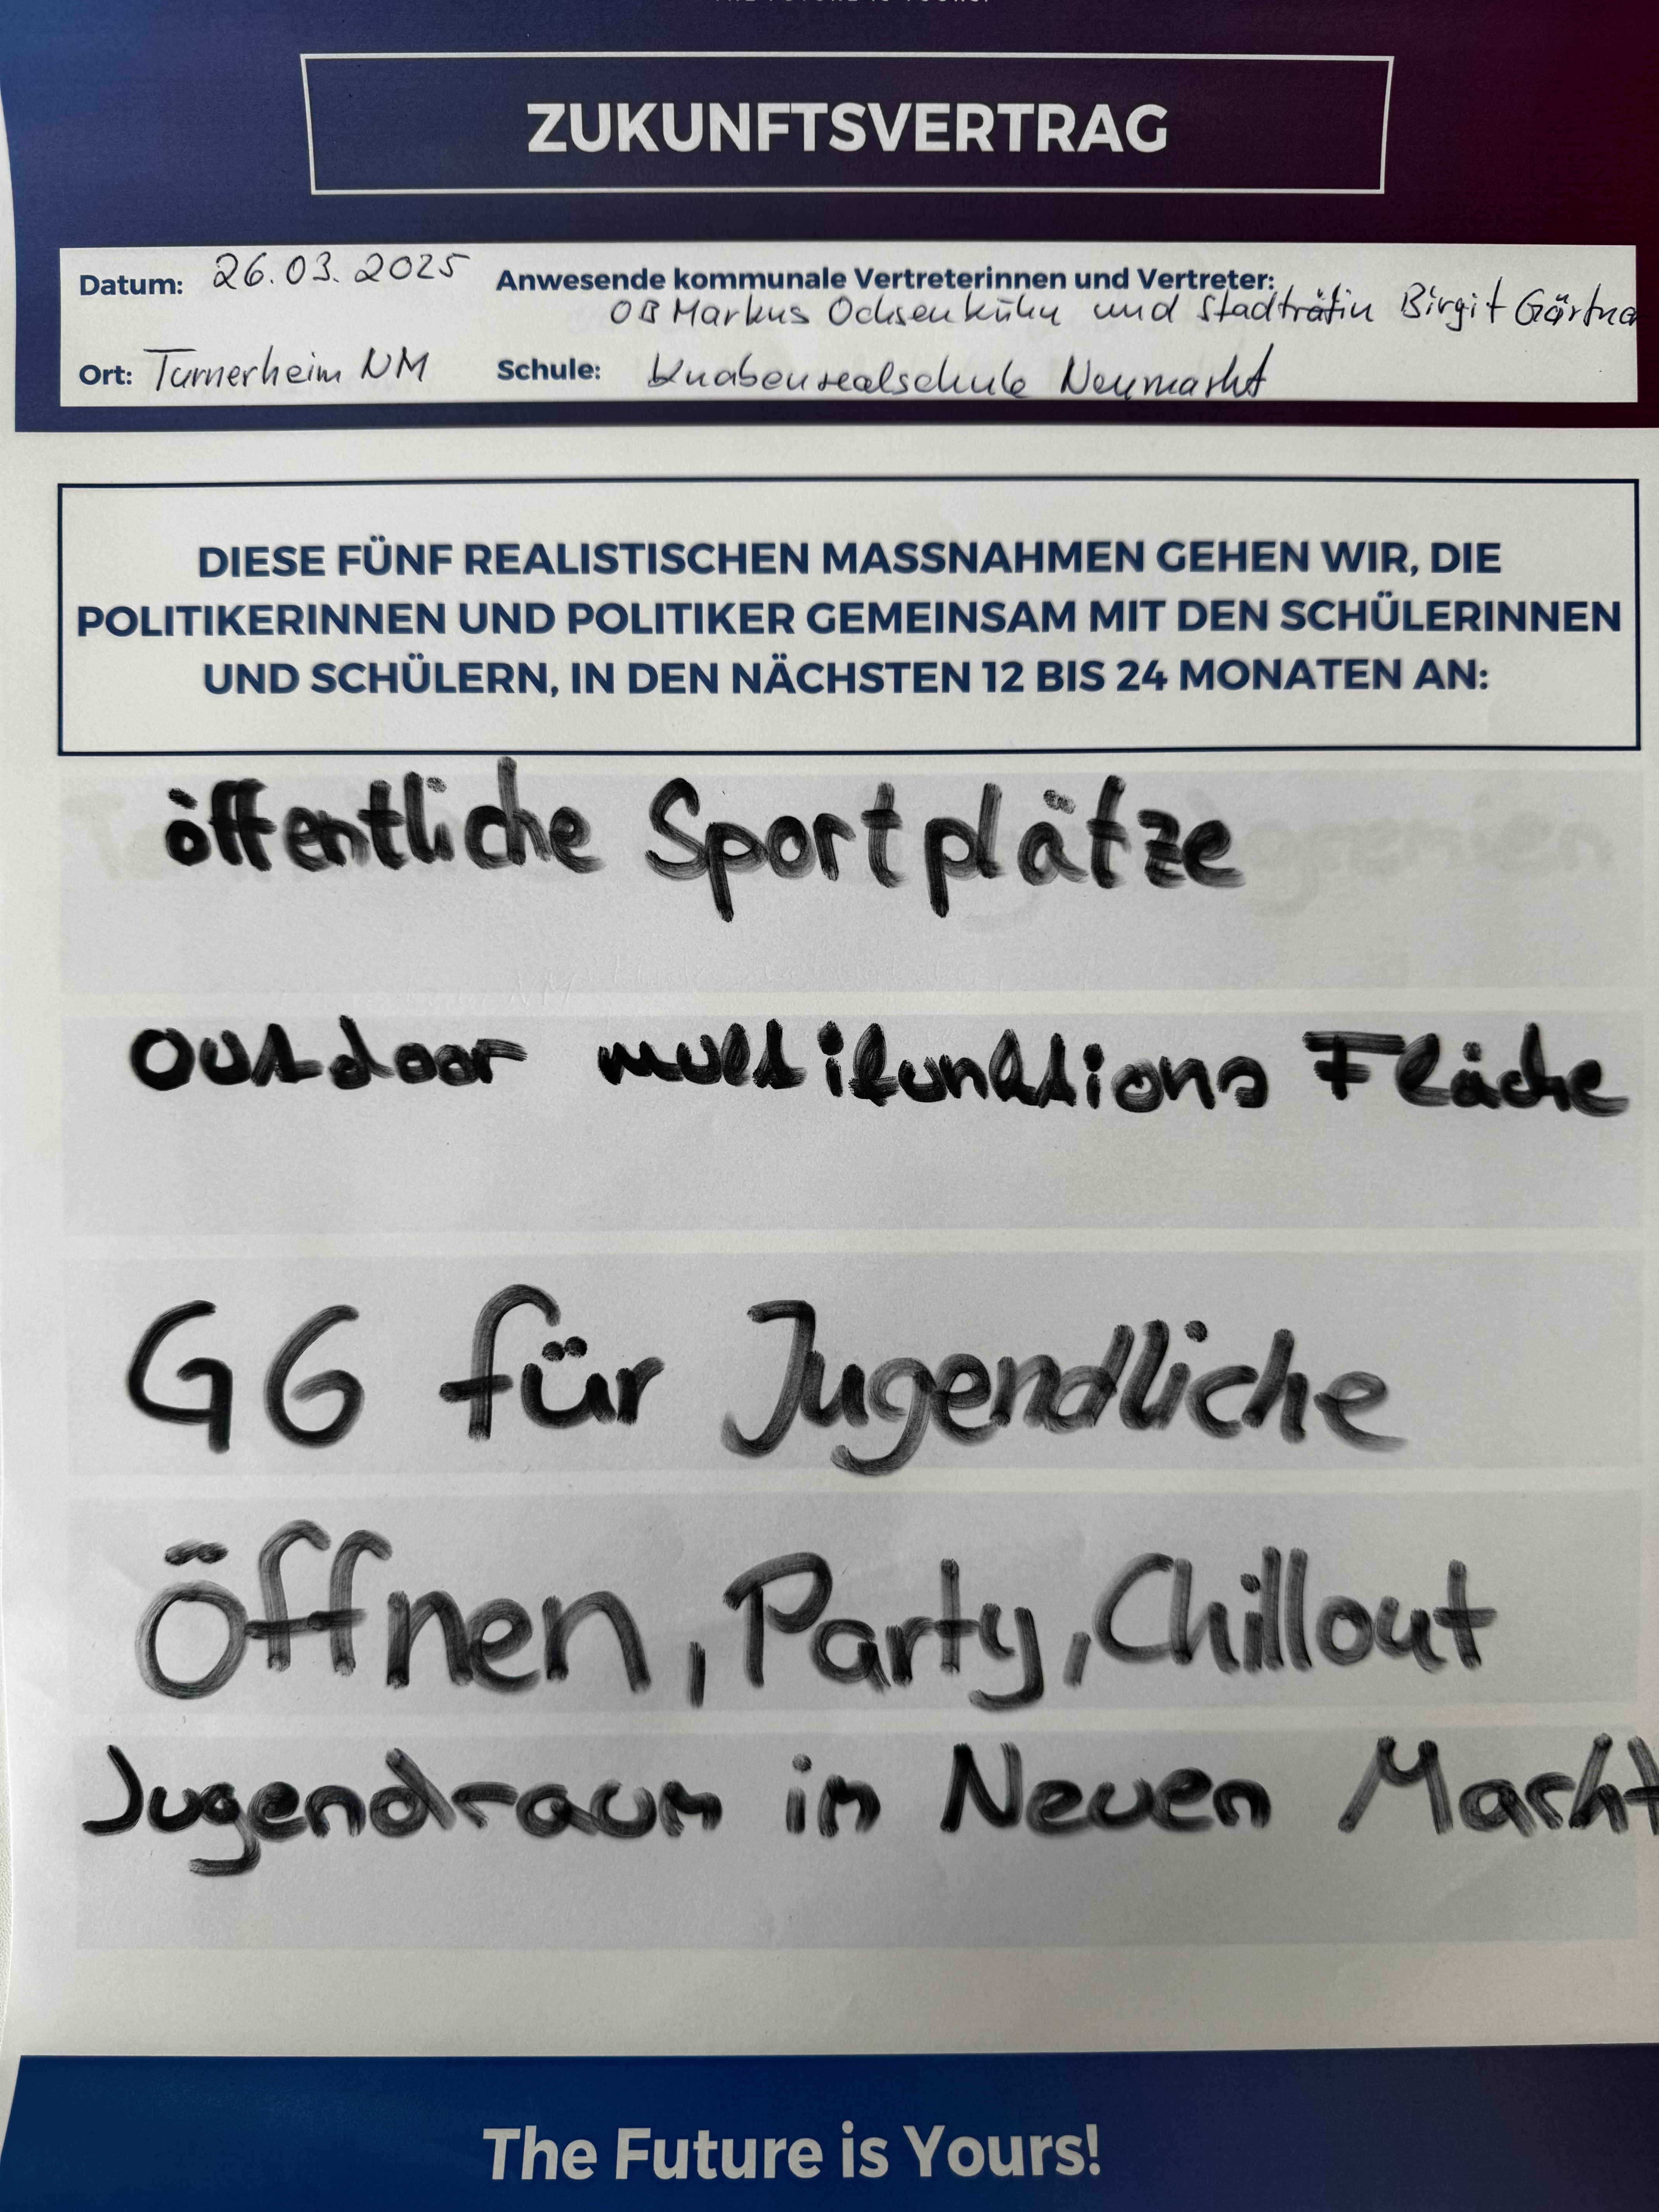 THE FUTURE IS YOURS!
ZUKUNFTSVERTRAG
Datum: 26.03.2025 Anwesende kommunale Vertreterinnen und Vertreter:
OB Markus Ochsenkühn und Stadträtin Birgit Gärtner
Ort: Turnerheim NM Schule: Knabenrealschule Neumarkt
DIESE FÜNF REALISTISCHEN MASSNAHMEN GEHEN WIR, DIE
POLITIKERINNEN UND POLITIKER GEMEINSAM MIT DEN SCHÜLERINNEN
UND SCHÜLERN, IN DEN NÄCHSTEN 12 BIS 24 MONATEN AN:
öffentliche Sportplätze
Outdoor multifunktions Fläche
G6 für Jugendliche
Öffnen, Party, Chillout
Jugendraum in Neuen Markt
The Future is Yours!